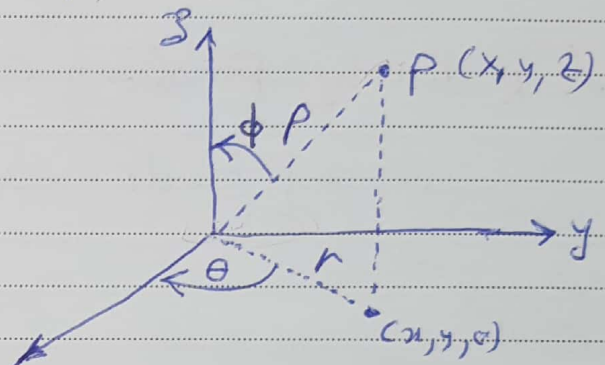 z
P (x, y, z)
ϕ ρ
y
θ r
(x, y, o)